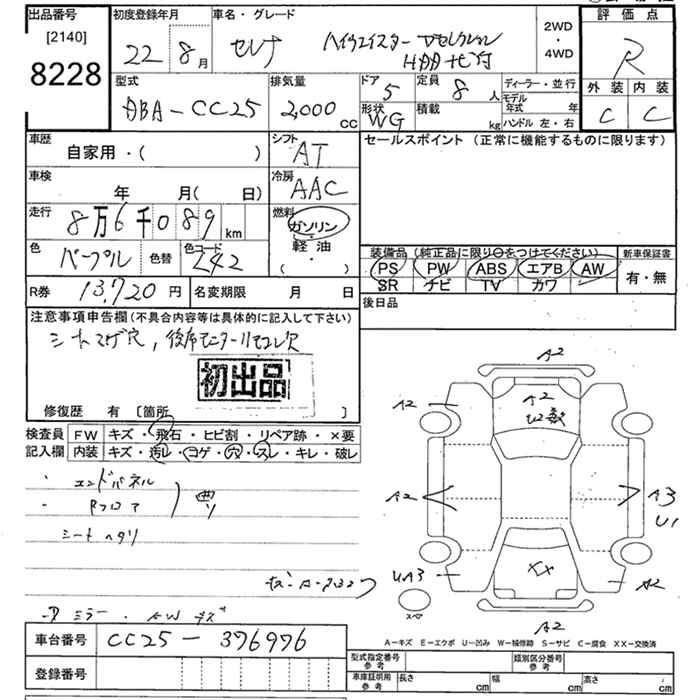 出品番号
[2140]
8228
初度登録年月
22 年 8 月
車名・グレード
セレナ ハイウェイスター Vセレクション
2WD
・
4WD
評価点
R
外装 内装
C C
型式
DBA-CC25
排気量
2,000 cc
ドア
5
形状
WG
定員
8 人
積載
kg
ディーラー・並行
モデル年式 年
ハンドル 左・右
車歴
自家用・( )
シフト
AT
車検
年 月(日)
冷房
AAC
走行
8万6千089 km
燃料
ガソリン
・
軽油
( ・ )
色
パープル
色替
色コード
242
R券 13,720 円
名変期限 月 日
セールスポイント (正常に機能するものに限ります)
装備品 (純正品に限り○をつけてください)
PS PW ABS エアB AW
SR ナビ TV カワ
新車保証書
有・無
後日品
注意事項申告欄(不具合内容等は具体的に記入して下さい)
シートコゲ穴, 後席モニターリモコン欠
初出品
修復歴 有 [箇所 ]
検査員
記入欄
FW キズ・飛石・ヒビ割・リペア跡・×要
内装 キズ・汚レ・コゲ・穴・スレ・キレ・破レ
・ エンドパネル
・ Rフロア
シートヘタリ
ミラー・AWキズ
A2
A2
A2
A2
A3
U1
XX
UA3
A2
A2
スペア
A−キズ E−エクボ U−凹み W−補修跡 S−サビ C−腐食 XX−交換済
車台番号 CC25-376976
登録番号
型式指定番号
参考
類別区分番号
参考
車庫証明用
参考
長さ cm
幅 cm
高さ cm